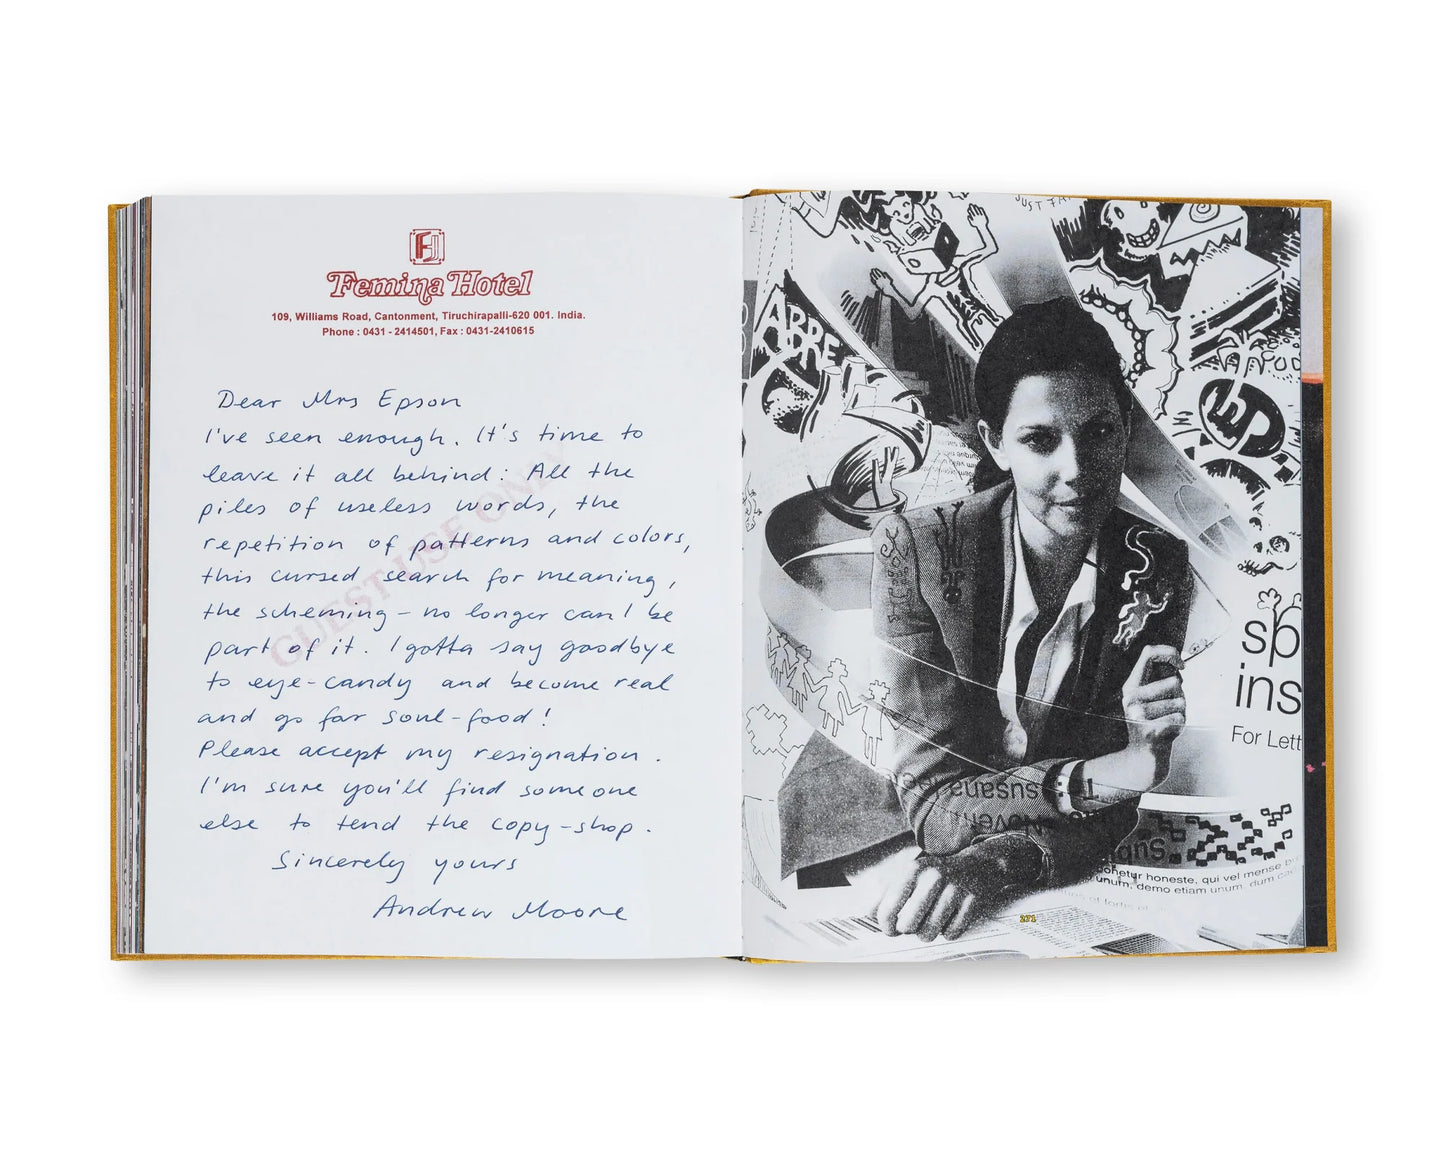 Femina Hotel
109, Williams Road, Cantonment, Tiruchirapalli-620 001. India.
Phone : 0431 - 2414501, Fax : 0431-2410615
GUEST USE ONLY
Dear Mrs Epson
I've seen enough. It's time to
leave it all behind: All the
piles of useless words, the
repetition of patterns and colors,
this cursed search for meaning,
the scheming – no longer can I be
part of it. I gotta say goodbye
to eye-candy and become real
and go for soul-food!
Please accept my resignation.
I'm sure you'll find someone
else to tend the copy-shop.
Sincerely yours
Andrew Moore
JUST
ARBRE
sp
ins
For Lett
susana
honeste, qui vel mense
unum, demo etiam unum, dum
271